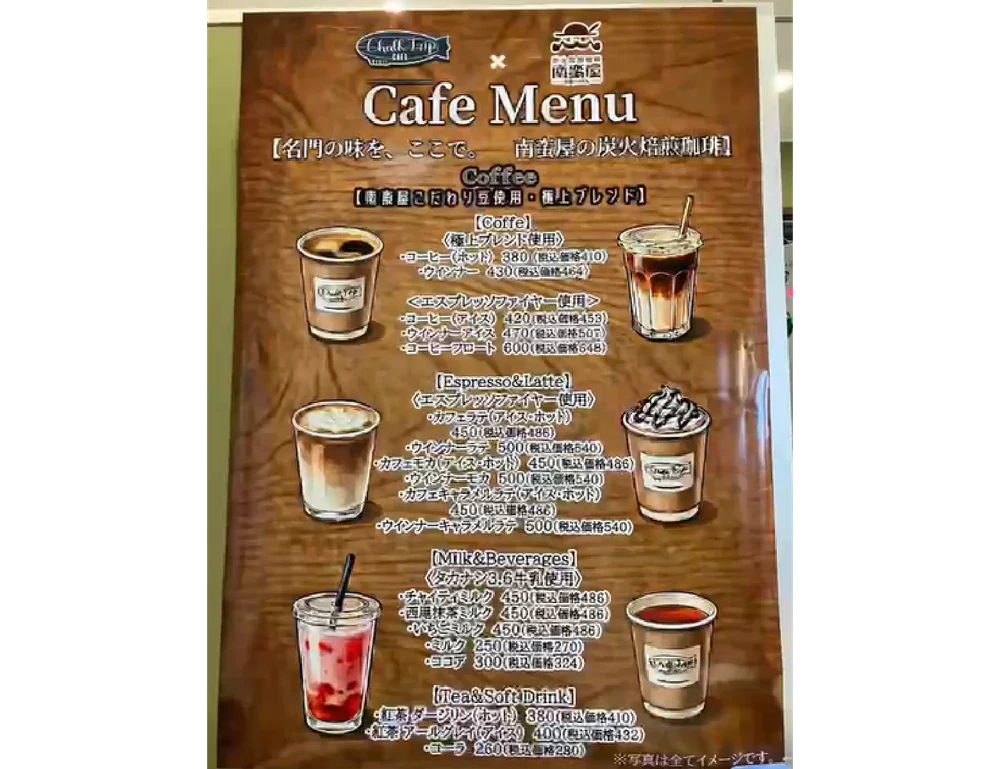 Chalk Trip
CAFE
×
南蛮屋
Cafe Menu
【名門の味を、ここで。 南蛮屋の炭火焙煎珈琲】
Coffee
【南蛮屋こだわり豆使用・極上ブレンド】
【Coffe】
〈極上ブレンド使用〉
・コーヒー(ホット) 380(税込価格410)
・ウインナー 430(税込価格464)
＜エスプレッソファイヤー使用＞
・コーヒー(アイス) 420(税込価格453)
・ウインナーアイス 470(税込価格507)
・コーヒーフロート 600(税込価格648)
【Espresso&Latte】
〈エスプレッソファイヤー使用〉
・カフェラテ(アイス・ホット)
450(税込価格486)
・ウインナーラテ 500(税込価格540)
・カフェモカ(アイス・ホット) 450(税込価格486)
・ウインナーモカ 500(税込価格540)
・カフェキャラメルラテ(アイス・ホット)
450(税込価格486)
・ウインナーキャラメルラテ 500(税込価格540)
【Milk&Beverages】
〈タカナシ3.6牛乳使用〉
・チャイティミルク 450(税込価格486)
・西尾抹茶ミルク 450(税込価格486)
・いちごミルク 450(税込価格486)
・ミルク 250(税込価格270)
・ココア 300(税込価格324)
【Tea&Soft Drink】
・紅茶 ダージリン(ホット) 380(税込価格410)
・紅茶 アールグレイ(アイス) 400(税込価格432)
・コーラ 260(税込価格280)
※写真は全てイメージです。